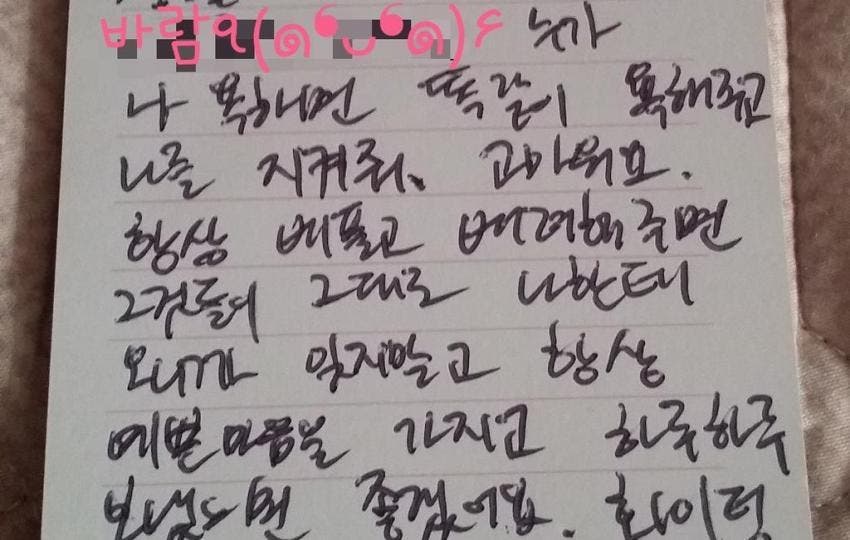 바람q(๑❛◡❛๑)۶ 누가
나 욕하면 똑같이 욕해주고
나를 지켜줘. 고마워요.
항상 베풀고 배려해주면
그것들이 그대로 나한테
오니까 잊지말고 항상
예쁜 마음을 가지고 하루하루
보냈으면 좋겠어요. 화이팅